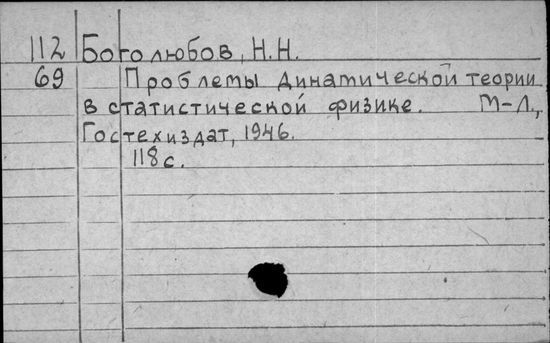 112 Боголюбов, Н.Н.
69 Проблемы динамической теории
в статистической физике. М-Л.,
Гостехиздат, 1946.
118 с.